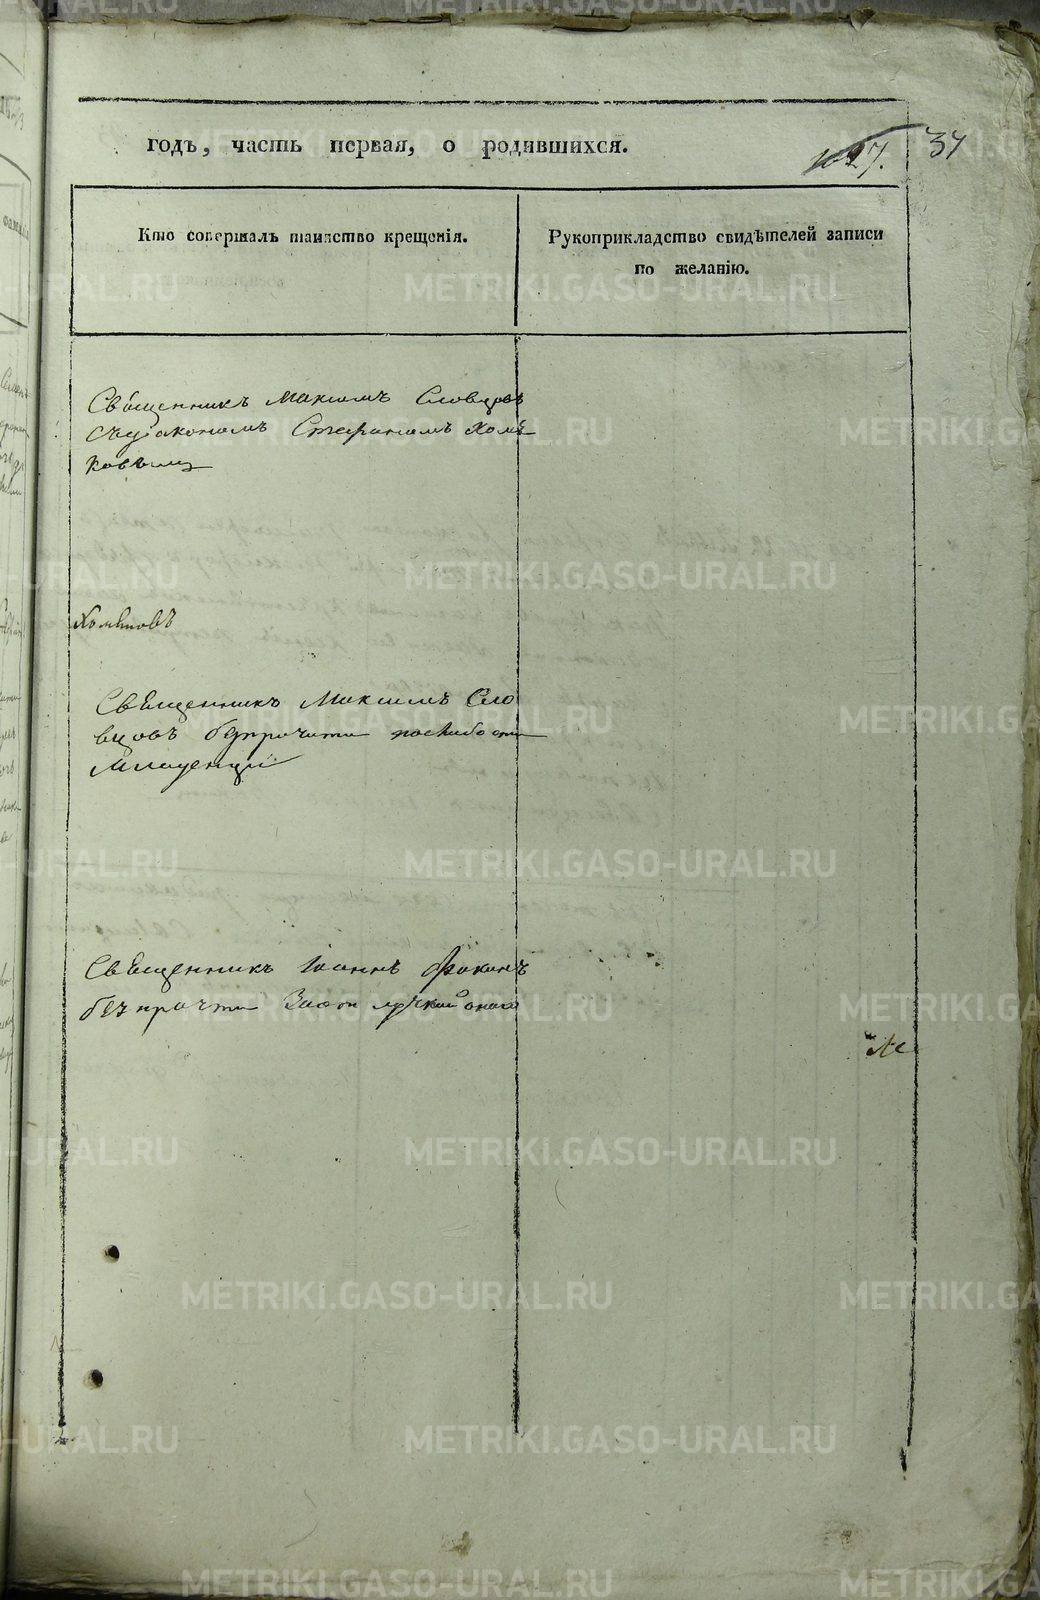 годъ, часть первая, о родившихся.
37
Кто совершалъ таинство крещенія.
Рукоприкладство свидѣтелей записи
по желанію.
Священникъ Максимъ Словцовъ
съ діакономъ Стефаномъ Хомѣ
ковымъ
Хомѣковъ
Священникъ Максимъ Сло
вцовъ безъ причта по слабости
младенца
Священникъ Іоаннъ
безъ причта
METRIKI.GASO-URAL.RU